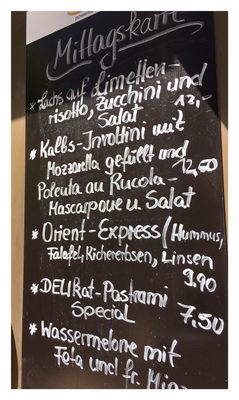 Mittagskarte
* Lachs auf Limetten-
risotto, Zucchini und
Salat 12,-
* Kalbs-Involtini mit
Mozzarella gefüllt und
Polenta an Rucola- 12,50
Mascarpone u. Salat
* Orient-Express (Hummus,
Falafel, Kichererbsen, Linsen
9.90
* DELIKat-Pastrami
Special 7.50
* Wassermelone mit
Feta und fr. Minze